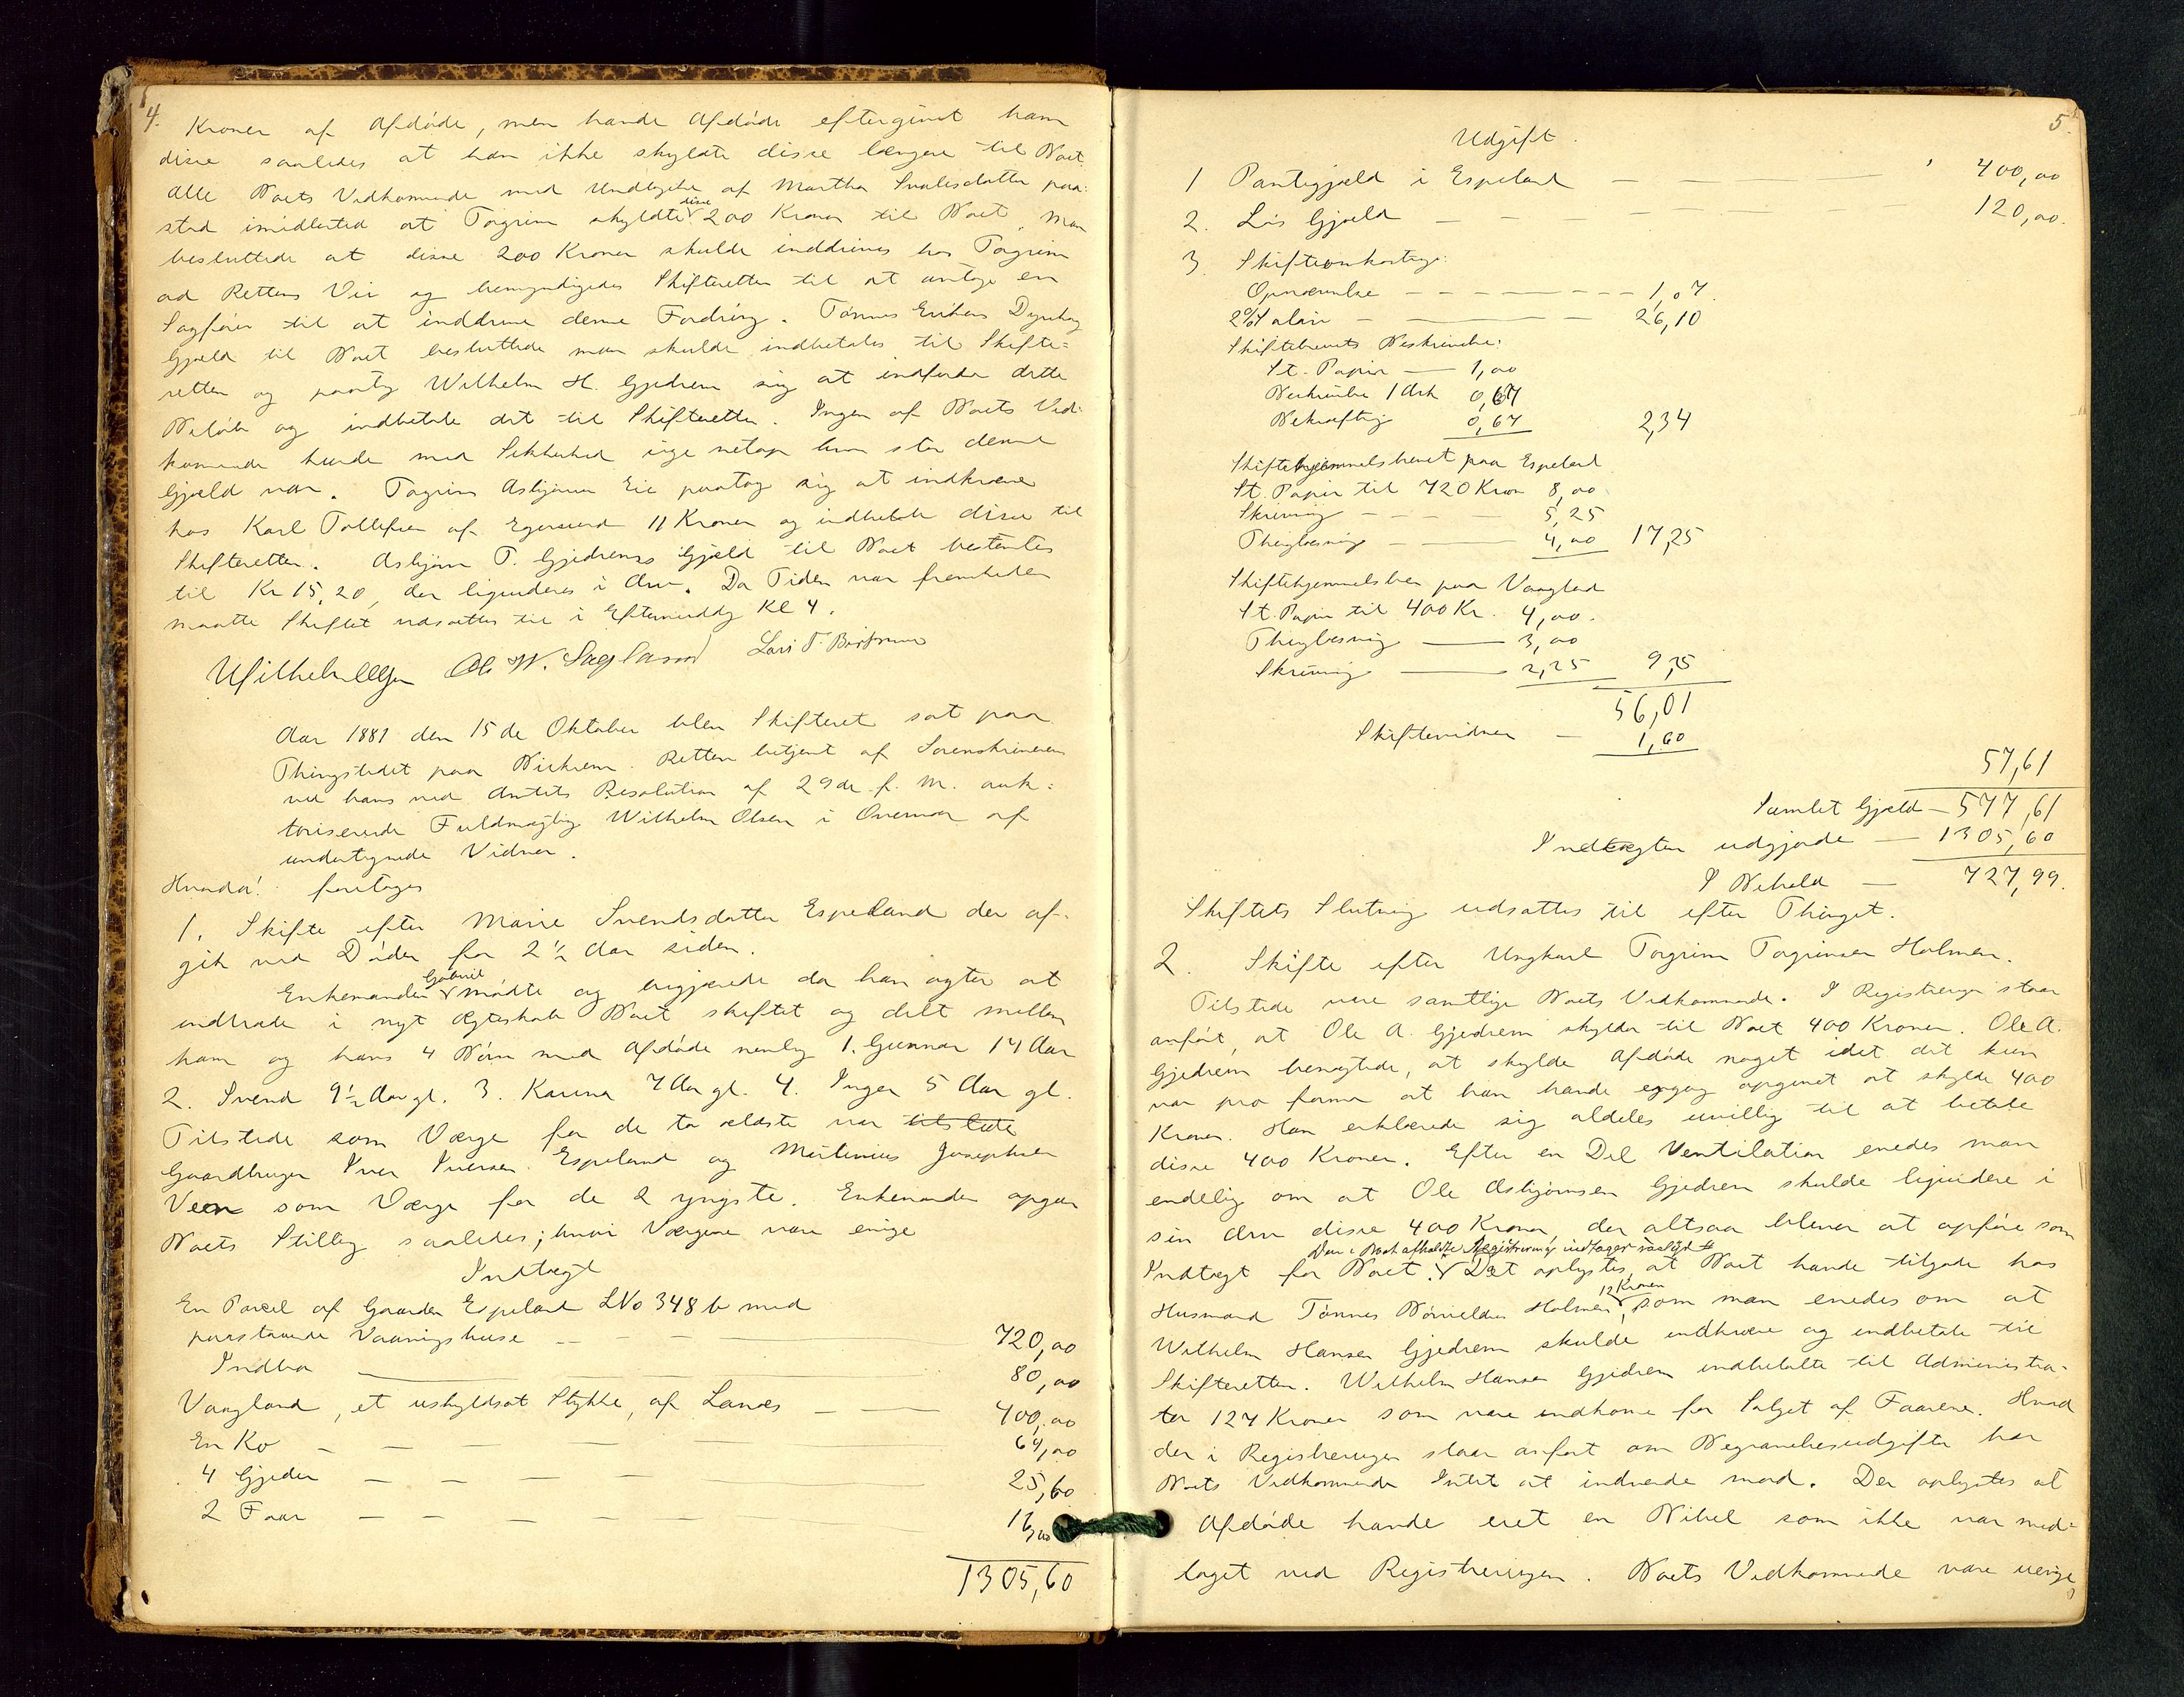 4.
Kroner af Afdøde, men havde Afdøde eftergivet ham
disse saaledes at han ikke skyldte disse længere til Boet.
Alle Boets Vedkommende med Undtagelse af Martha Svalesdatter paa-
stod imidlertid at Torgrim skyldte disse 200 Kroner til Boet. Man
besluttede at disse 200 Kroner skulde inddrives hos Torgrim
ad Rettens Vei og bemyndigedes Skifteretten til at antage en
Sagfører til at inddrive denne Fordring. Tønnes Eriksen
Gjæld til Boet besluttede man skulde indbetales til Skifte=
retten og paatog Wilhelm H. Gjedrem sig at indfordre dette
Beløb og indbetale det til Skifteretten. Ingen af Boets Ved-
kommende kunde med Sikkerhed sige netop hvor stor denne
Gjæld var. Torgrim Asbjørnsen Eie paatog sig at indkræve
hos Karl Tollefsen af Egersund 11 Kroner og indbetale disse til
Skifteretten. Asbjørn T. Gjedrems Gjæld til Boet bestemtes
til Kr 15,20, der ligvideres i Arv. Da Tiden var fremleden
maatte Skiftet udsættes til i Eftermiddag Kl 4.
Wilhelm Olsen Ole W. Sagland Lars T. Birkrem
Aar 1881 den 15de Oktober blev Skifteret sat paa
Thingstedet paa Birkrem. Retten betjent af Sorenskriveren
ved hans ved Amtets Resolution af 29de f. M. auk=
toriserede Fuldmægtig Wilhelm Olsen i Overvær af
undertegnede Vidner.
Hvorda! foretoges
1. Skifte efter Marie Svendsdatter Espeland der af-
gik ved Døden for 2 1/2 Aar siden.
Enkemanden Gabriel mødte og begjærede da han agter at
indtræde i nyt Ægteskab Boet skiftet og delt mellem
ham og hans 4 Børn med Afdøde nemlig 1. Gunnar 14 Aar
2. Svend 9 1/2 Aar gl. 3. Karina 7 Aar gl. 4. Inger 5 Aar gl.
Tilstede som Værge for de to ældste var tilstede
Gaardbruger Iver Iversen Espeland og Mertinius Josephsen
Veen som Værge for de 2 yngste. Enkemanden opgav
Boets Stilling saaledes; hvori Værgerne vare enige
Indtægt
En Parcel af Gaarden Espeland LNo 348 b med
paastaaende Vaaningshuse — 720,00
Indbo — 80,00
Vaagland, et uskyldsat Stykke af Lands — 400,00
En Ko — 64,00
4 Gjeder — 25,60
2 Faar — 16,00
1305,60
5.
Udgift.
1 Pantegjæld i Espeland — 400,00
2. Løs Gjæld — 120,00.
3. Skifteomkostninger:
Opnævnelse — 1,07.
2% Salær — 26,10
Skiftebrevets Beskrivelse:
St. Papir — 1,00
Beskrivelse 1 Ark 0,67
Bekræftning 0,67 2,34
Skiftehjemmelsbrevet paa Espeland
St. Papir til 720 Kroner 8,00
Skrivning — 5,25
Thinglæsning — 4,00 17,25
Skiftehjemmelsbrev paa Vaagland
St. Papir til 400 Kr. 4,00.
Thinglæsning — 3,00
Skrivning — 2,25 9,25
56,01
Skiftevidner — 1,60
57,61
Samlet Gjæld — 577,61
Indtægten udgjorde — 1305,60
I Behold — 727,99.
Skiftets Slutning udsattes til efter Thinget.
2. Skifte efter Ungkarl Torgrim Torgrimsen Holmen.
Tilstede vare samtlige Boets Vedkommende. I Registreringen staar
anført, at Ole A. Gjedrem skylder til Boet 400 Kroner. Ole A.
Gjedrem benegtede, at skylde Afdøde noget idet det kun
var pro forma at han havde engang opgivet at skylde 400
Kroner. Han erklærede sig aldeles uvillig til at betale
disse 400 Kroner. Efter en Del Ventilation enedes man
endelig om at Ole Asbjørnsen Gjedrem skulde ligvidere i
sin Arv disse 400 Kroner, der altsaa bliver at opføre som
Den i Boet afholdte Registrering indtages saalydende
Indtægt for Boet. Det oplystes, at Boet havde tilgode hos
Husmand Tønnes Holmen 12 Kroner, som man enedes om at
Wilhelm Hansen Gjedrem skulde indkræve og indbetale til
Skifteretten. Wilhelm Hansen Gjedrem indbetalte til Administra-
tor 127 Kroner som vare indkomne for Salget af Faarene. Hvad
der i Registreringen staar anført om Begravelsesudgifter har
Boets Vedkommende Intet at indvende mod. Der oplystes at
Afdøde havde eiet en Bibel som ikke var med=
taget ved Registreringen. Boets Vedkommende vare uenige